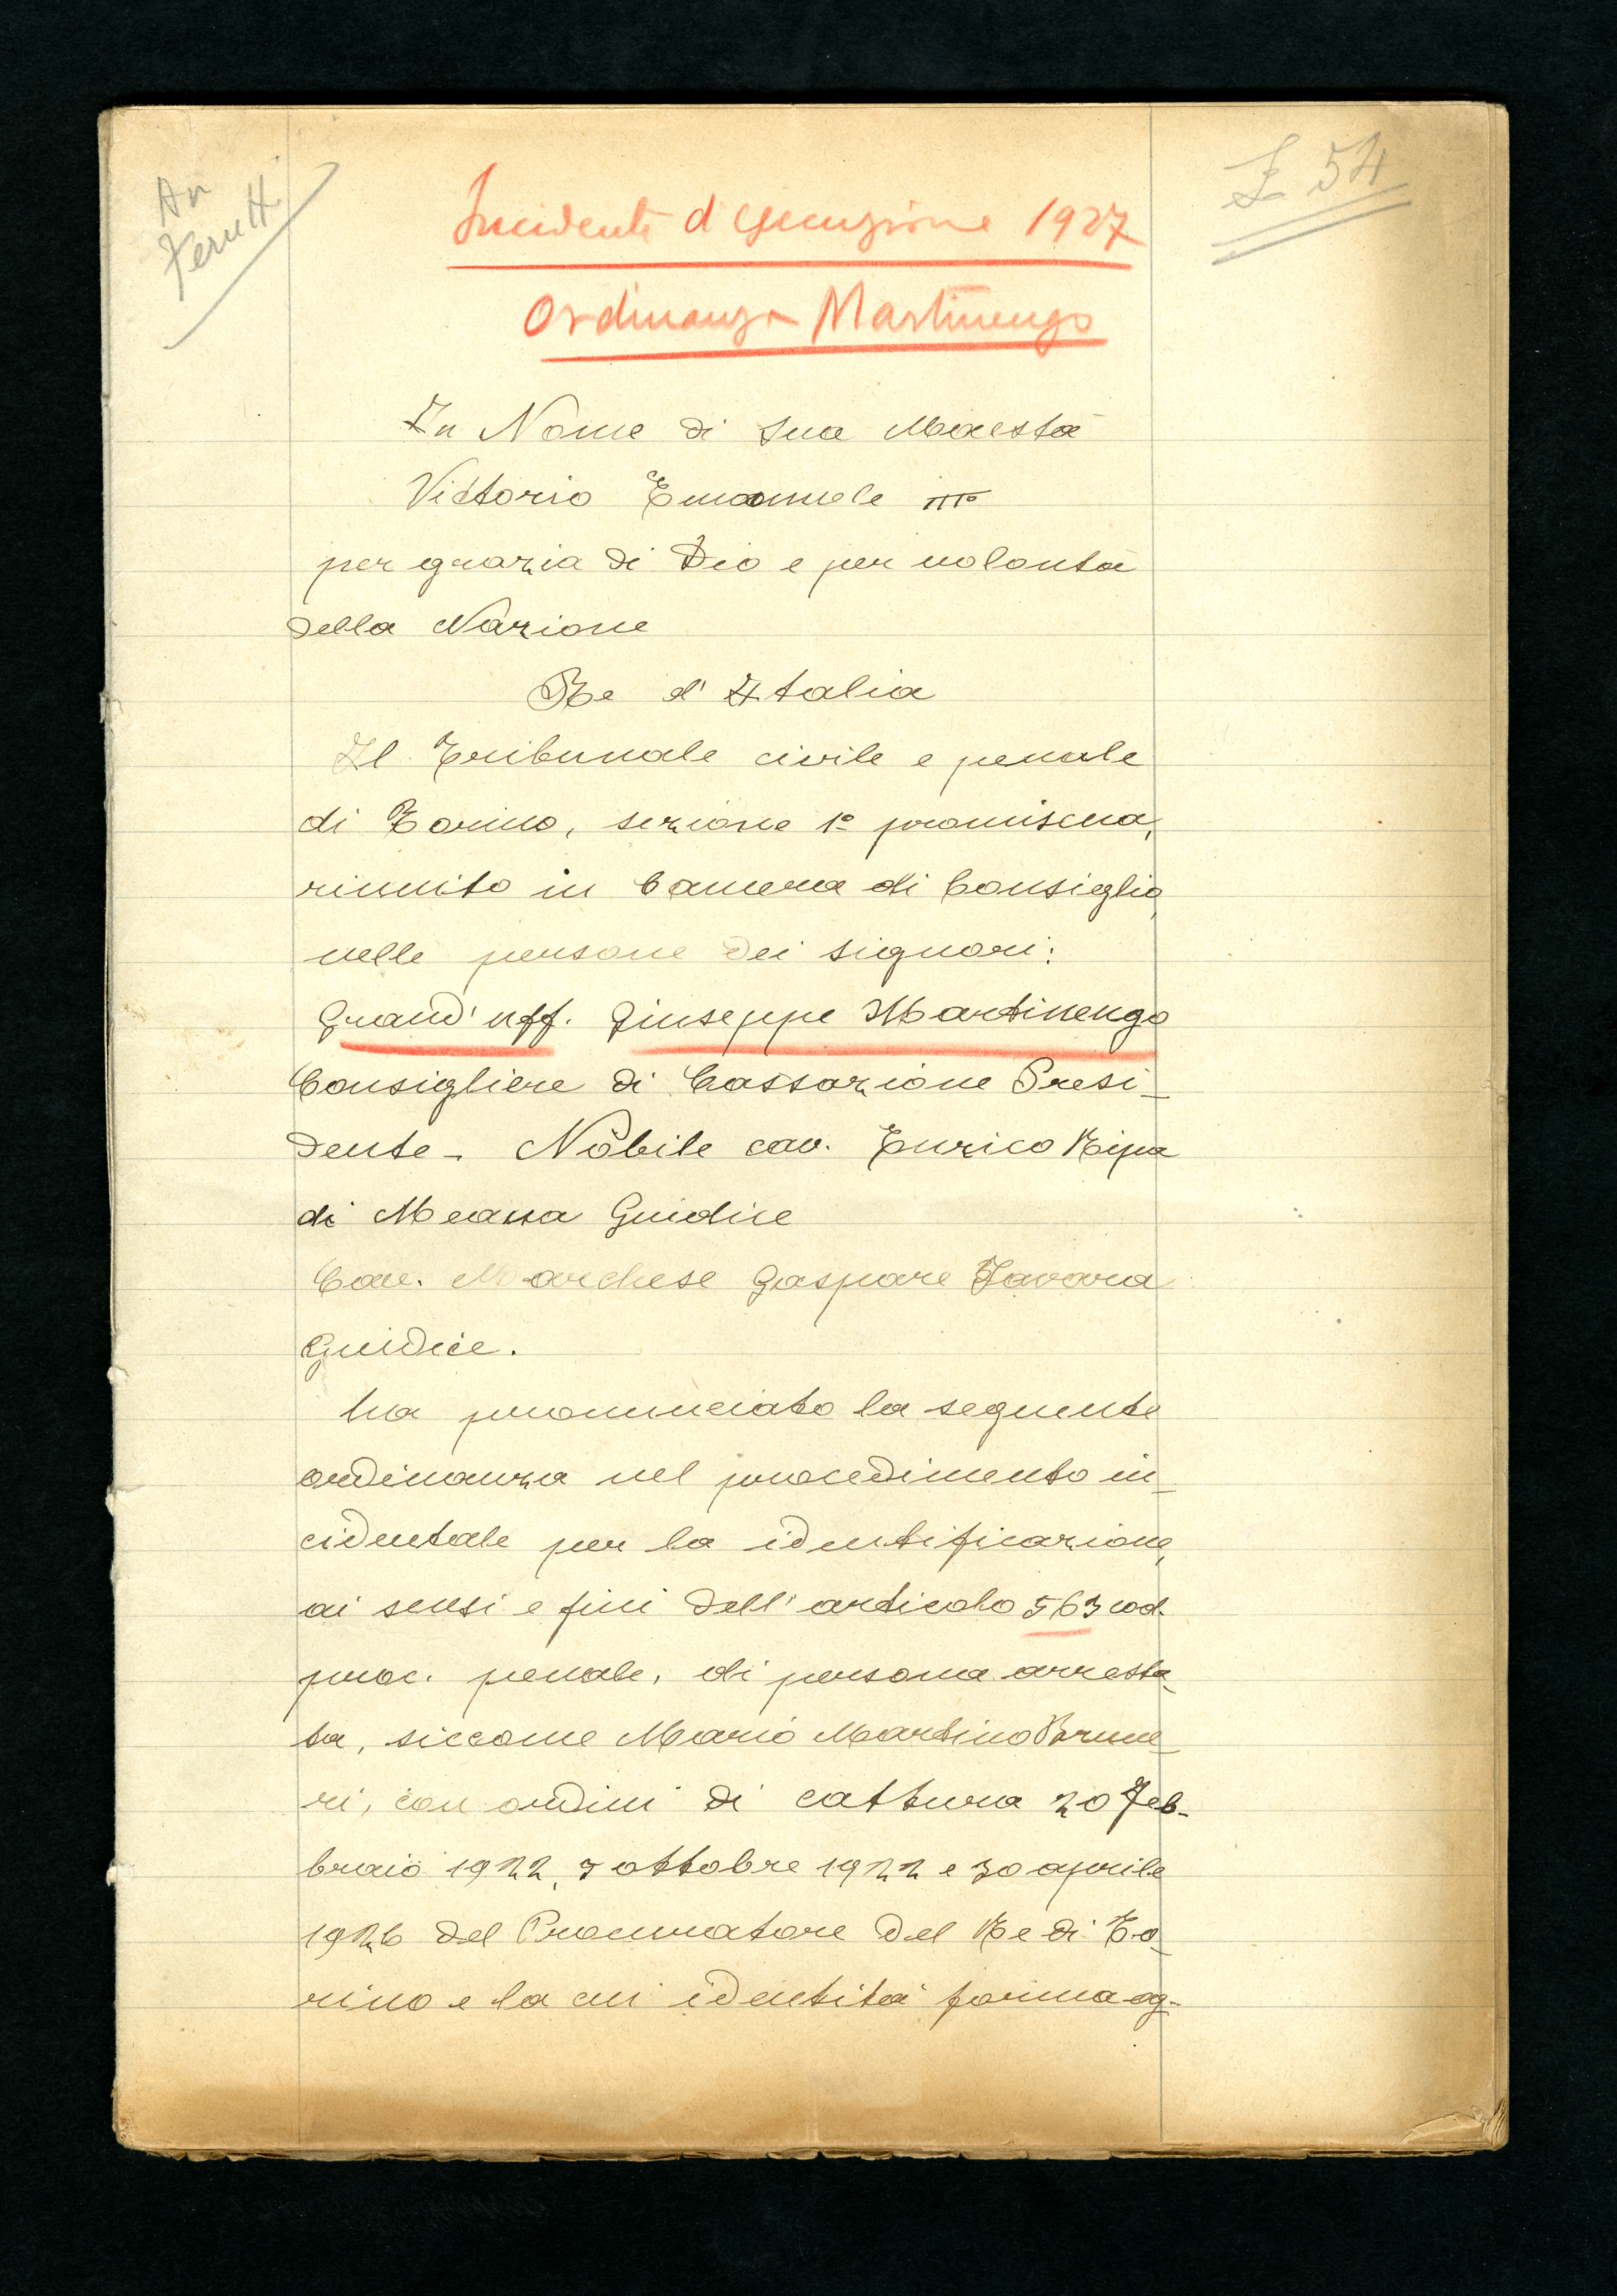 Z 54
Incidente d esecuzione 1927
Ordinanza Martinengo
In Nome di Sua Maestà
Vittorio Emanuele III°
per grazia di Dio e per volontà
della Nazione
Re d'Italia
Il Tribunale civile e penale
di Torino, sezione 1ª promiscua,
riunito in Camera di Consiglio,
nelle persone dei signori:
Grand'uff. Giuseppe Martinengo
Consigliere di Cassazione Presi-
dente - Nobile cav. Enrico Ripa
di Meana Giudice
Cav. Marchese Gaspare
Giudice.
ha pronunciato la seguente
ordinanza nel procedimento in-
cidentale per la identificazione,
ai sensi e fini dell'articolo 563 cod.
proc. penale, di persona arresta-
ta, siccome Mario Martino Brune-
ri, con ordini di cattura 20 Feb-
braio 1922, 5 ottobre 1922 e 30 aprile
1926 del Procuratore del Re di To-
rino e la cui identità forma og-